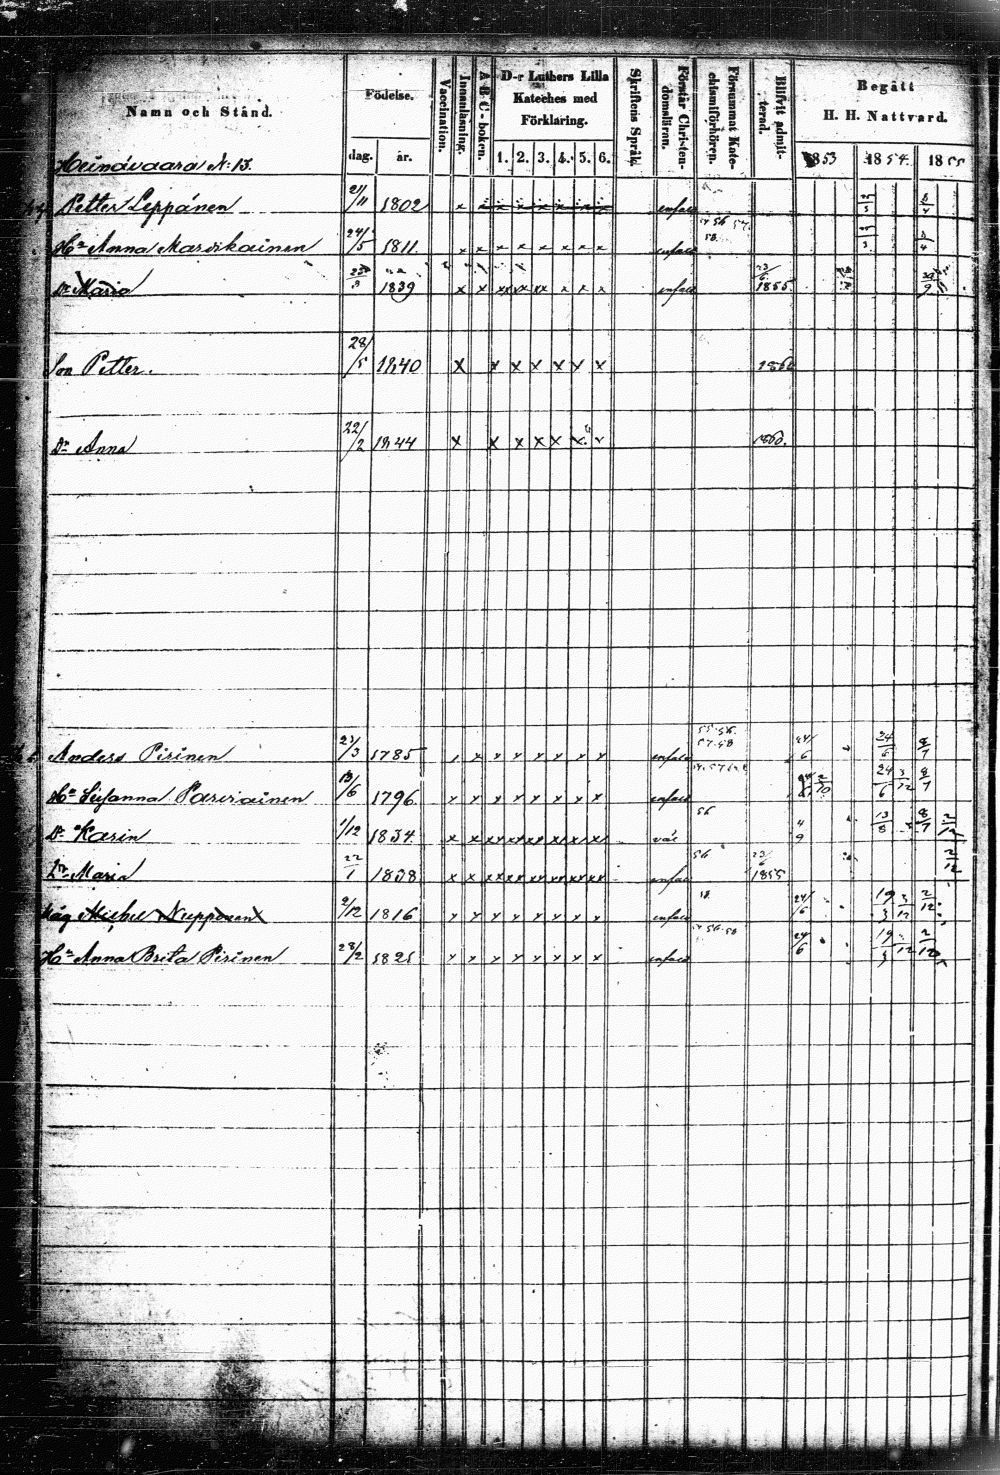 Namn och Stånd.
Födelse.
dag.
år.
Vaccination.
Innanläsning.
A B C - boken.
D-r Luthers Lilla
Kateches med
Förklaring.
1. 2. 3. 4. 5. 6.
Skriftens Språk.
Förstår Christen-
domsläran.
Försummat Kate-
chismiförhören.
Blifvit admit-
terad.
Begått
H. H. Nattvard.
1853 1854. 1855
Heinävaara N: 13.
Petter Leppänen 21/11 1802 x x x x x x x x enfald
Hu Anna Marikainen 24/5 1811 x x x x x x x x enfald
Dr Maria 1839 x x xx xx xx x x x enfald 1855
Son Petter. 28/5 1840 x x x x x x x 1860
Dr Anna 22/2 1844 x x x x x x x 1860.
Anders Pirinen 23/3 1785 x x x x x x x x enfald 24/6 24/6 8/7
Hu Susanna Parviainen 13/6 1796 x x x x x x x x enfald 24/6 3/12 8/7
Dr Karin 1/12 1834 x x xx xx xx xx xx xx 56 4/9 13/8 8/7
Dr Maria 22/1 1838 x x xx xx xx xx xx xx enfald 56 1855 2/12
Måg Michel Nupponen 2/12 1816 x x x x x x x x enfald 24/6 19/3 3/12 2/12
Hu Anna Brita Pirinen 28/2 1821 x x x x x x x x enfald 24/6 19/3 2/12